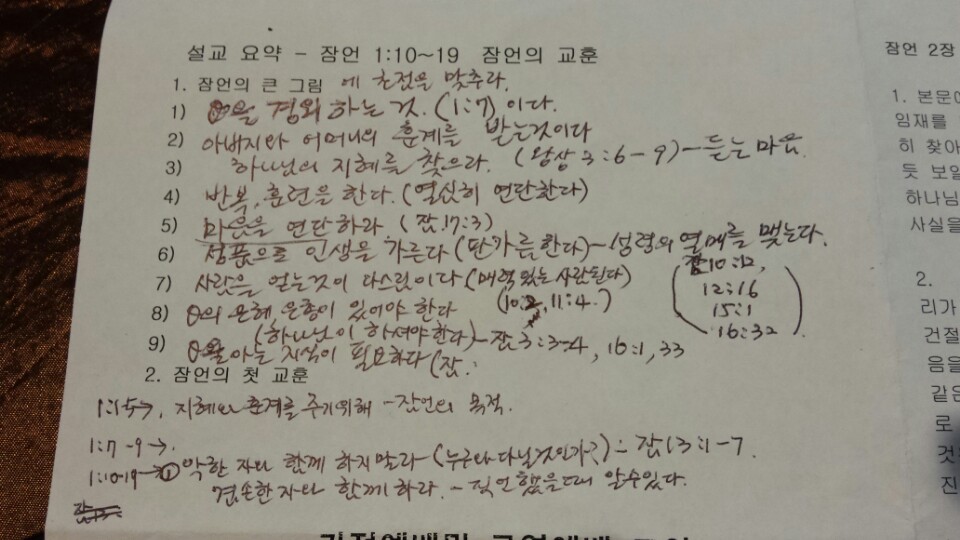 설교 요약 - 잠언 1:10~19 잠언의 교훈
1. 잠언의 큰 그림 에 초점을 맞추라.
1) θ을 경외 하는 것. (1:7) 이다.
2) 아버지와 어머니의 훈계를 받는것이다
3) 하나님의 지혜를 찾으라. (왕상 3:6-9) - 듣는 마음.
4) 반복, 훈련을 한다. (열심히 연단한다)
5) 마음을 연단하라 (잠.17:3)
6) 성품으로 인생을 가른다 (판가름한다) - 성령의 열매를 맺는다.
(잠10:12,
12:16
15:1
16:32)
7) 사람을 얻는것이 다스림이다 (매력있는 사람된다)
8) θ의 은혜, 은총이 있어야 한다 (10:2, 11:4.)
(하나님이 하셔야한다) - 잠.3:3-4, 16:1, 33
9) θ을 아는 지식이 필요하다 (잠.:
2. 잠언의 첫 교훈
1:1-5→, 지혜와 훈계를 주기위해 - 잠언의 목적.
1:7-9→.
1:10-19→① 악한 자와 함께 하지말라 - (누구와 다닐것인가?) - 잠13:1-7.
겸손한자와 함께하라. - 직언했을때 알수있다.
잠언 2장
1. 본문에
임재를
히 찾아
듯 보일
하나님
사실을
2.
리가
건절
음을
같은
로
것
진